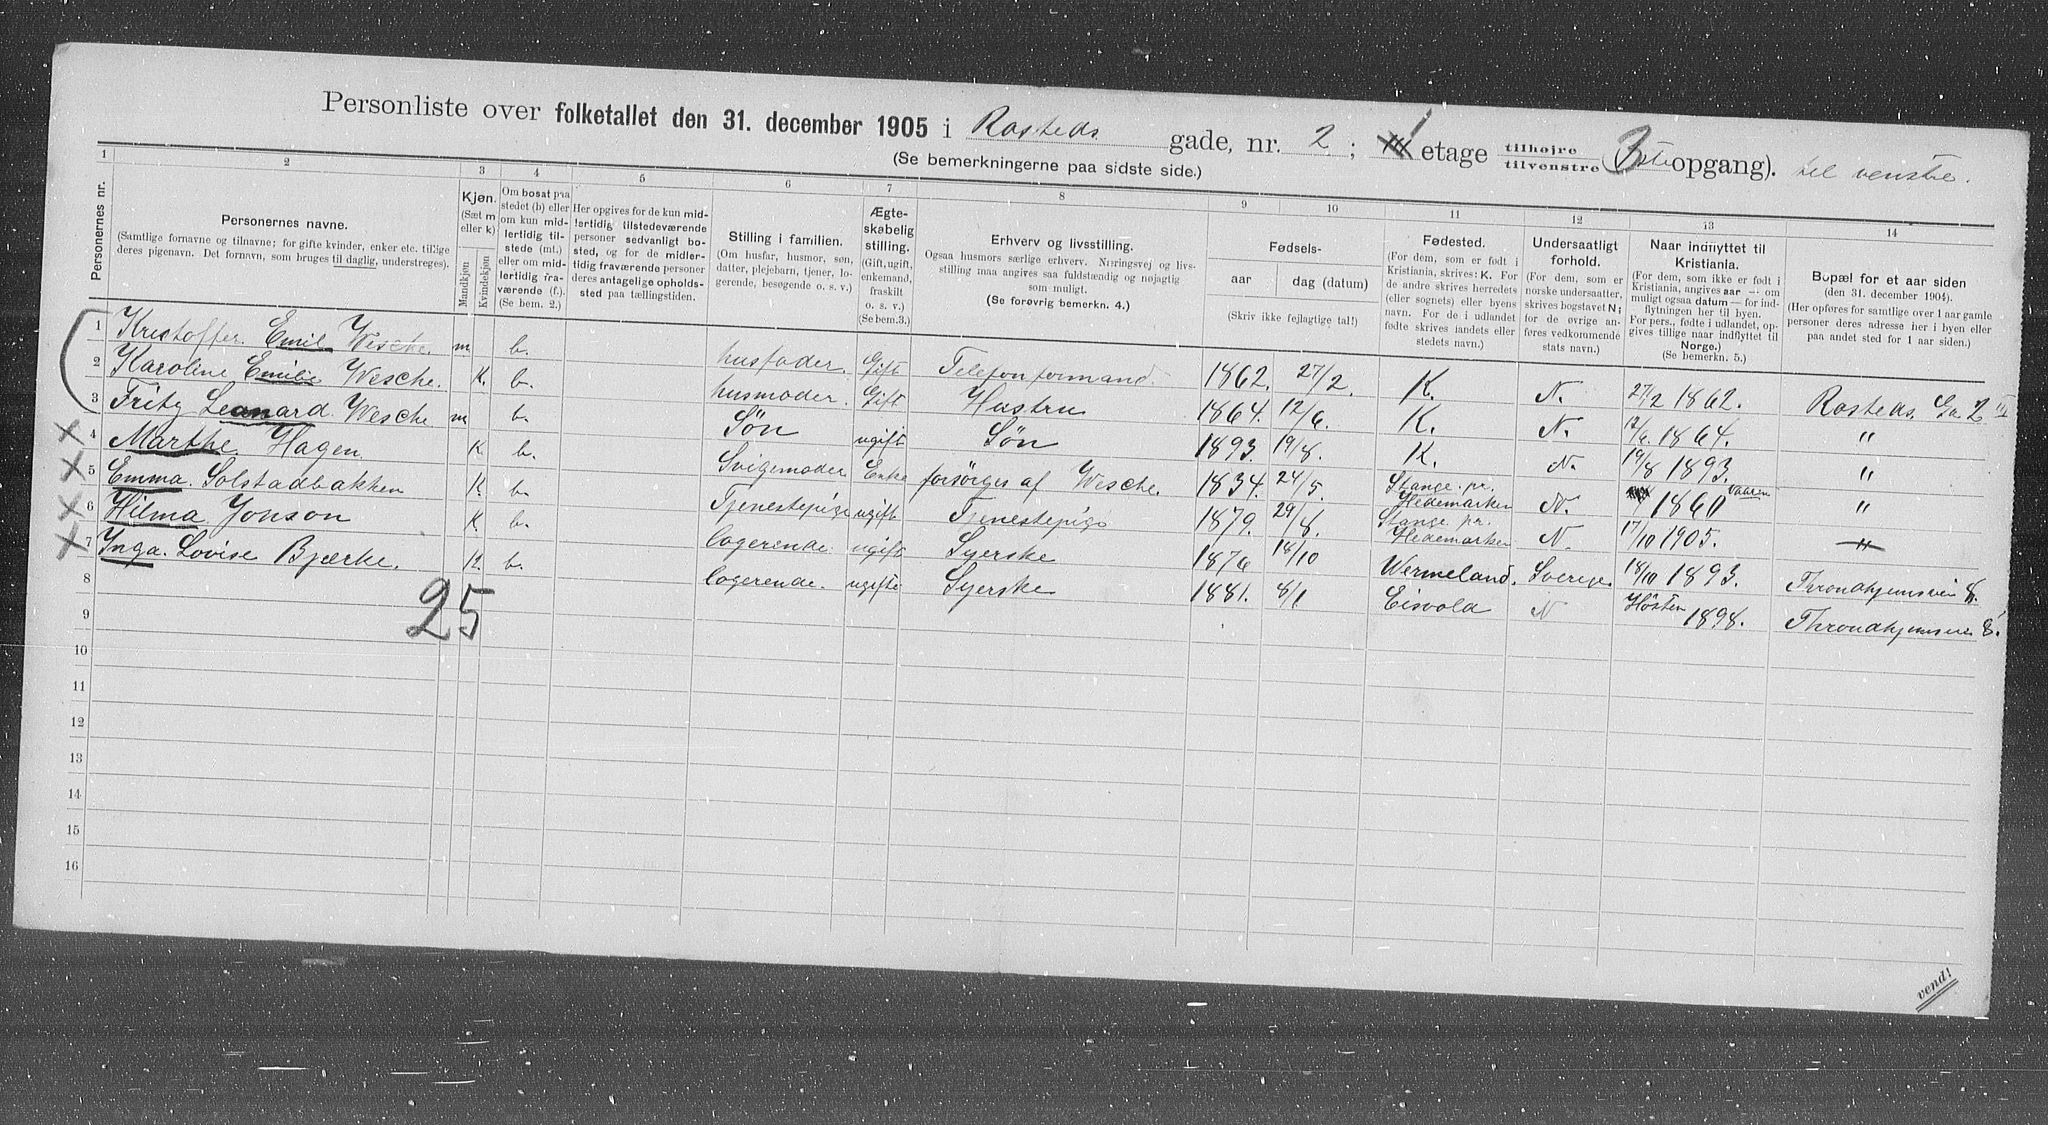 Personliste over folketallet den 31. december 1905 i Rosteds gade, nr. 2; etage tilhøjre tilvenstre ( opgang). til venstre.
(Se bemerkningerne paa sidste side.)
1 2 3 4 5 6 7 8 9 10 11 12 13 14
Personernes nr.
Personernes navne.
(Samtlige fornavne og tilnavne; for gifte kvinder, enker etc. tillige deres pigenavn. Det fornavn, som bruges til daglig, understreges).
Kjøn.
(Sæt m eller k)
Mandkjøn
Kvindekjøn
Om bosat paa stedet (b) eller om kun midlertidig tilstede (mt.) eller om midlertidig fraværende (f.). (Se bem. 2.)
Her opgives for de kun midlertidig tilstedeværende personer sedvanligt bosted, og for de midlertidig fraværende personer deres antagelige opholdssted paa tællingstiden.
Stilling i familien.
(Om husfar, husmor, søn, datter, plejebarn, tjener, logerende, besøgende o. s. v.)
Ægteskabelig stilling.
(Gift, ugift, enkemand, fraskilt o. s. v.)
(Se bem. 3.)
Erhverv og livsstilling.
Ogsaa husmors særlige erhverv. Næringsvej og livsstilling maa angives saa fuldstændig og nøjagtig som muligt.
(Se forøvrig bemerkn. 4.)
Fødsels-
aar
dag (datum)
(Skriv ikke fejlagtige tal!)
Fødested.
(For dem, som er født i Kristiania, skrives: K. For de andre skrives herredets (eller sognets) eller byens navn. For de i udlandet fødte skrives landets eller stedets navn.)
Undersaatligt forhold.
(For dem, som er norske undersaatter, skrives bogstavet N; for de øvrige anføres vedkommende stats navn.)
Naar indflyttet til Kristiania.
(For dem, som ikke er født i Kristiania, angives aar — om muligt ogsaa datum — for indflytningen her til byen. For pers., fødte i udlandet, opgives tillige naar indflyttet til Norge.)
(Se bemerkn. 5.)
Bopæl for et aar siden
(den 31. december 1904.)
(Her opføres for samtlige over 1 aar gamle personer deres adresse her i byen eller paa andet sted for 1 aar siden.)
1 Kristoffer Emil Wesche. m b. husfader. Gift Telefonformand. 1862. 27/2. K. N. 27/2 1862. Rosteds. Ga 2
2 Karoline Emilie Wesche. K. b. husmoder. Gift Hustru 1864. 12/6. K. N. 12/6. 1864. "
3 Fritz Leonard. Wesche m b. Søn ugift Søn 1893. 19/8. K. N. 19/8 1893. "
4 Marthe Hagen. K b. Svigemoder Enke forsørges af Wesche. 1834. 24/5. Stange. pr. Hedemarken N. 1860 vaaren "
5 Emma. Solstadbakken K. b. Tjenestepige ugift Tjenestepige 1879. 29/8. Stange pr. Hedemarken N. 17/10 1905. "
6 Hilma Jonson K. b. logerende. ugift Syerske 1876 18/10 Wermeland. Sverige. 18/10 1893. Throndhjemsvei 8.
7 Inga. Lovise Bjærke. K. b. logerende. ugifte Syerske 1881. 8/1. Eisvold N Høsten 1898. Throndhjemsvei 8.
8
9
25
10
11
12
13
14
15
16
vend!